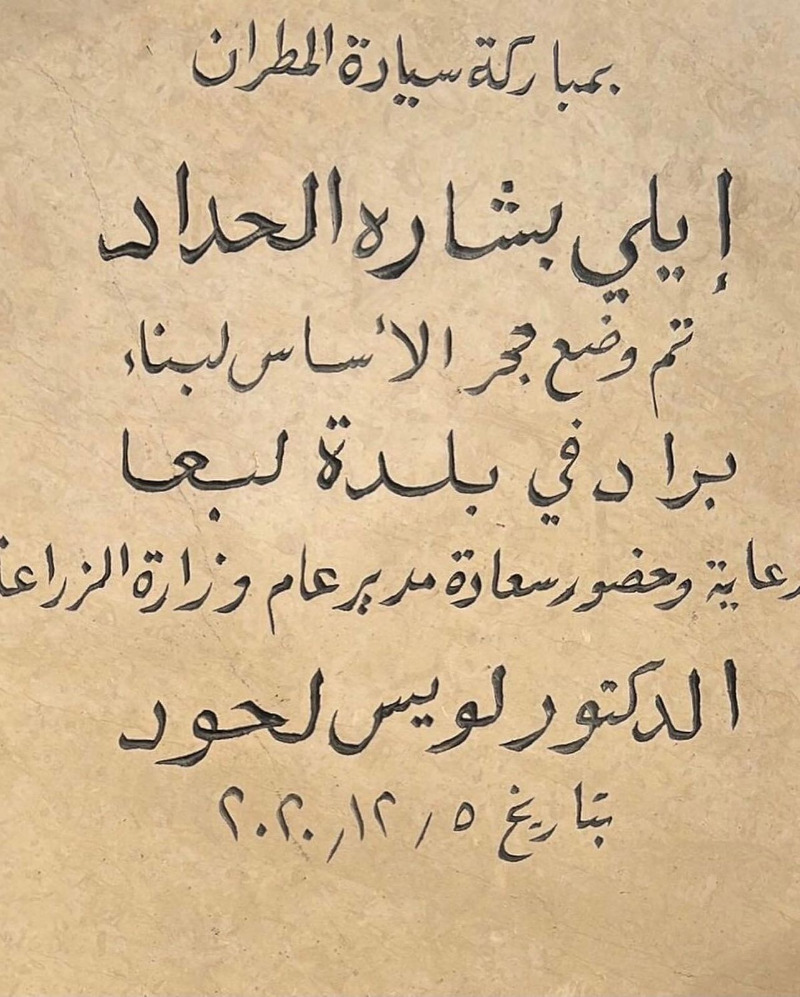 بمباركة سيادة المطران
إيلي بشاره الحداد
تم وضع حجر الأساس لبناء
براد في بلدة لبعا
برعاية وحضور سعادة مدير عام وزارة الزراعة
الدكتور لويس لحود
بتاريخ ٥ / ١٢ / ٢٠٢٠